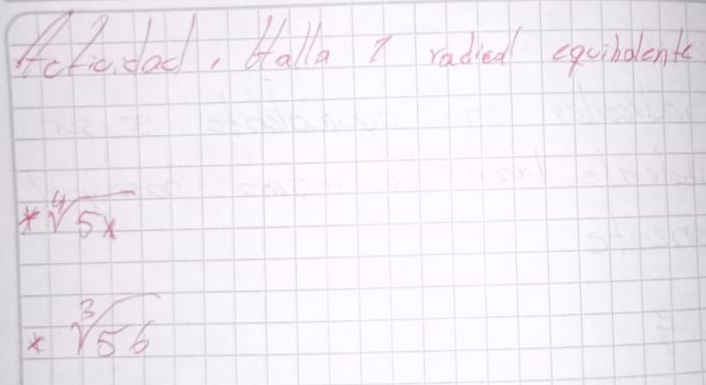 Actividad, Halla 1 radical equibalente
* ∜5x
* ∛56